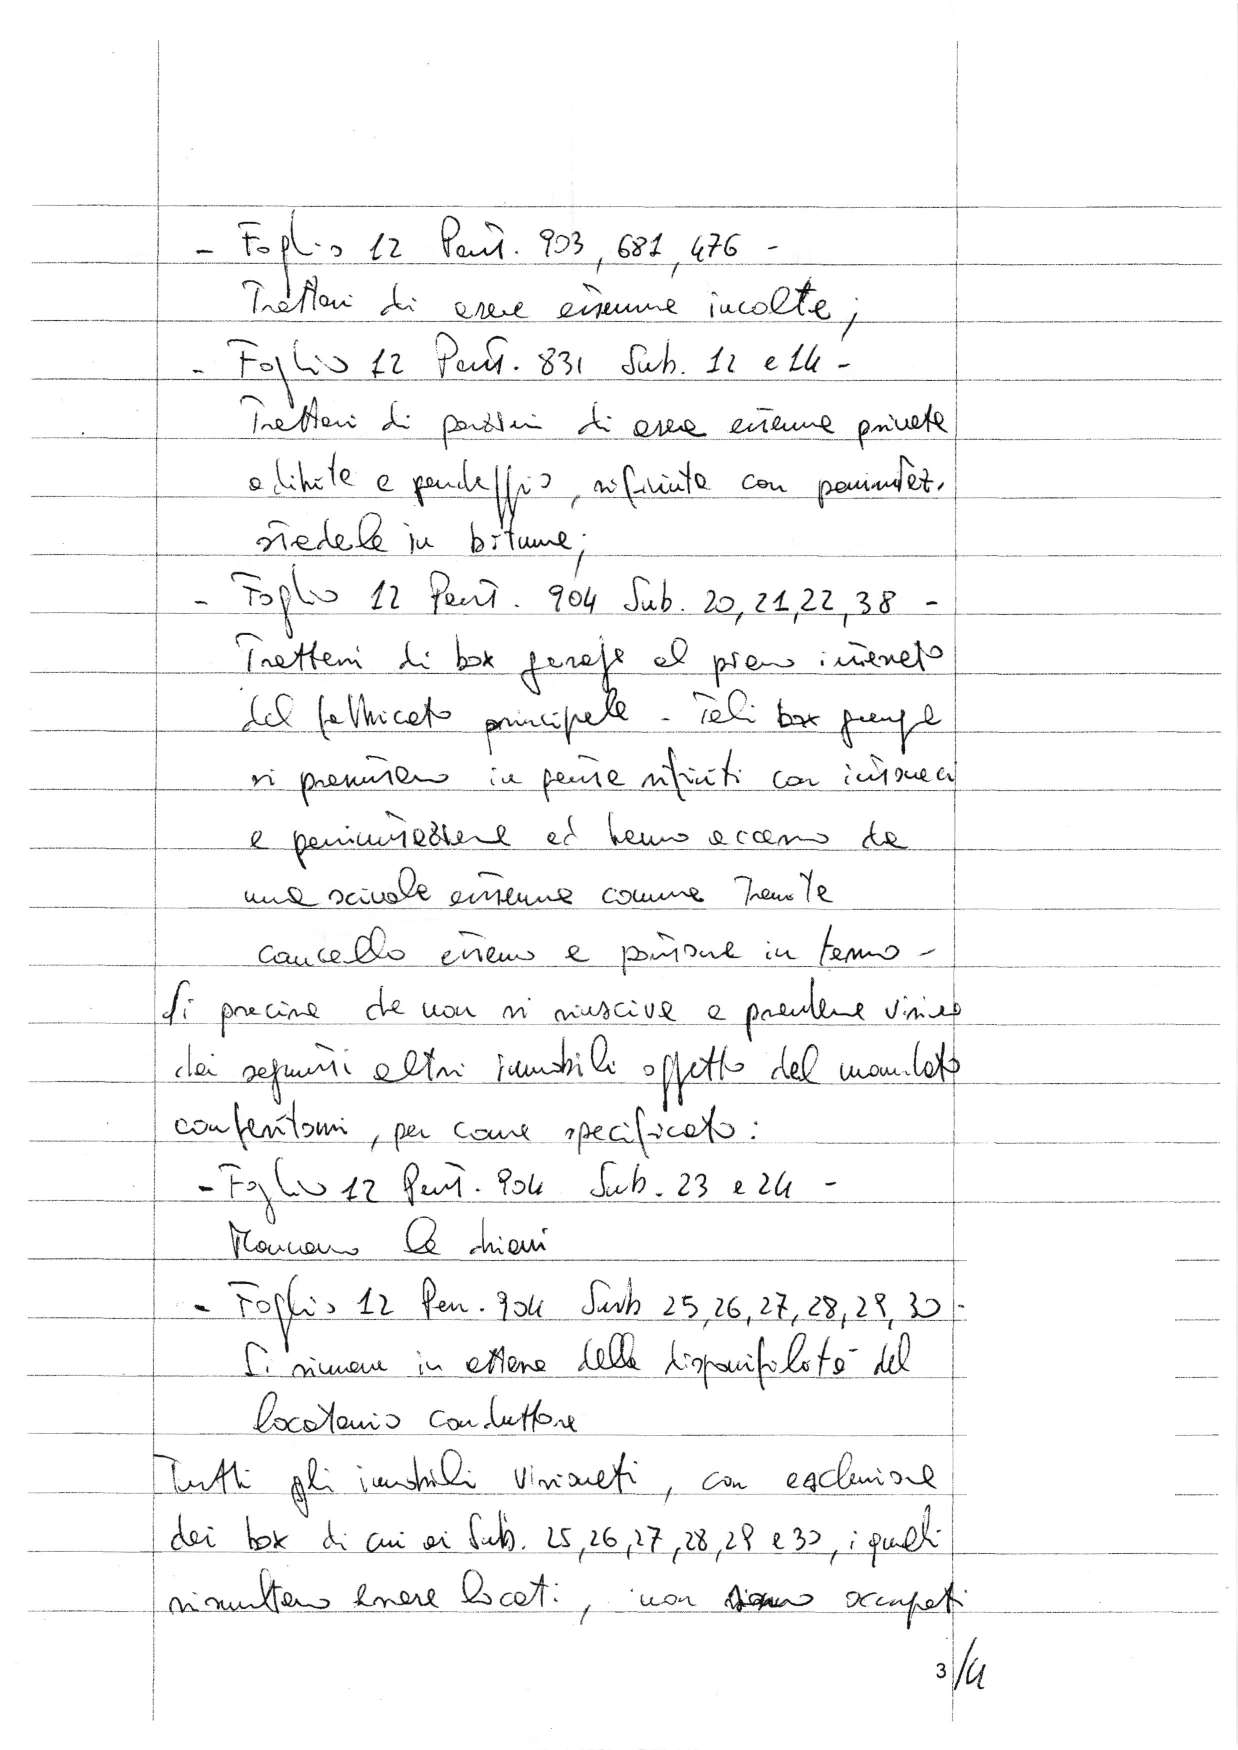 - Foglio 12 Part. 903, 681, 476 -
Trattasi di aree esterne incolte;
- Foglio 12 Part. 831 Sub. 12 e 14 -
Trattasi di porzioni di aree esterne private
adibite a parcheggio, rifinite con pavimentaz.
stradale in bitume;
- Foglio 12 Part. 904 Sub. 20, 21, 22, 38 -
Trattasi di box garage al piano interrato
del fabbricato principale - Tali box garage
si presentano in parte rifiniti con intonaci
e pavimentazione ed hanno accesso da
una scivola esterna comune tramite
cancello esterno e portone interno -
Si precisa che non si riusciva a prendere visione
dei seguenti altri immobili oggetto del mandato
conferitomi, per come specificato:
- Foglio 12 Part. 904 Sub. 23 e 24 -
Mancano le chiavi
- Foglio 12 Par. 904 Sub 25, 26, 27, 28, 29, 30 -
Si rimane in attesa della disponibilità del
locatario conduttore
Tutti gli immobili visionati, con esclusione
dei box di cui ai Sub. 25, 26, 27, 28, 29 e 30, i quali
risultano essere locati, non sono occupati
3/4